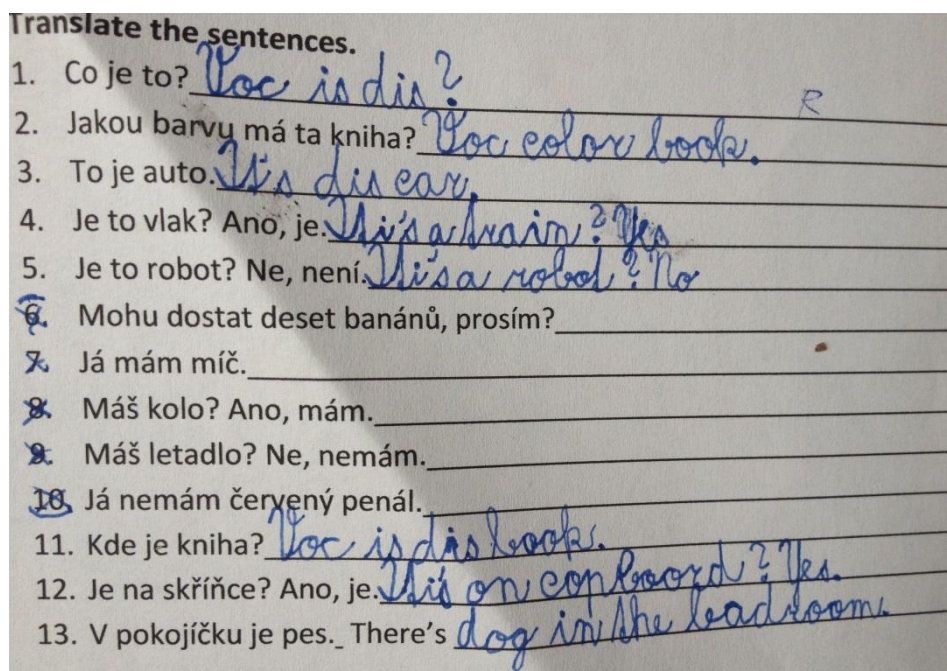 Translate the sentences.
1. Co je to? Voc is dis?
R
2. Jakou barvu má ta kniha? Voc color book.
3. To je auto. It's dis car.
4. Je to vlak? Ano, je. It's a train? Yes
5. Je to robot? Ne, není. It's a robot? No
6. Mohu dostat deset banánů, prosím?
7. Já mám míč.
8. Máš kolo? Ano, mám.
9. Máš letadlo? Ne, nemám.
10. Já nemám červený penál.
11. Kde je kniha? Voc is dis book.
12. Je na skříňce? Ano, je. It's on copboord? Yes.
13. V pokojíčku je pes._ There's dog in the badroom.